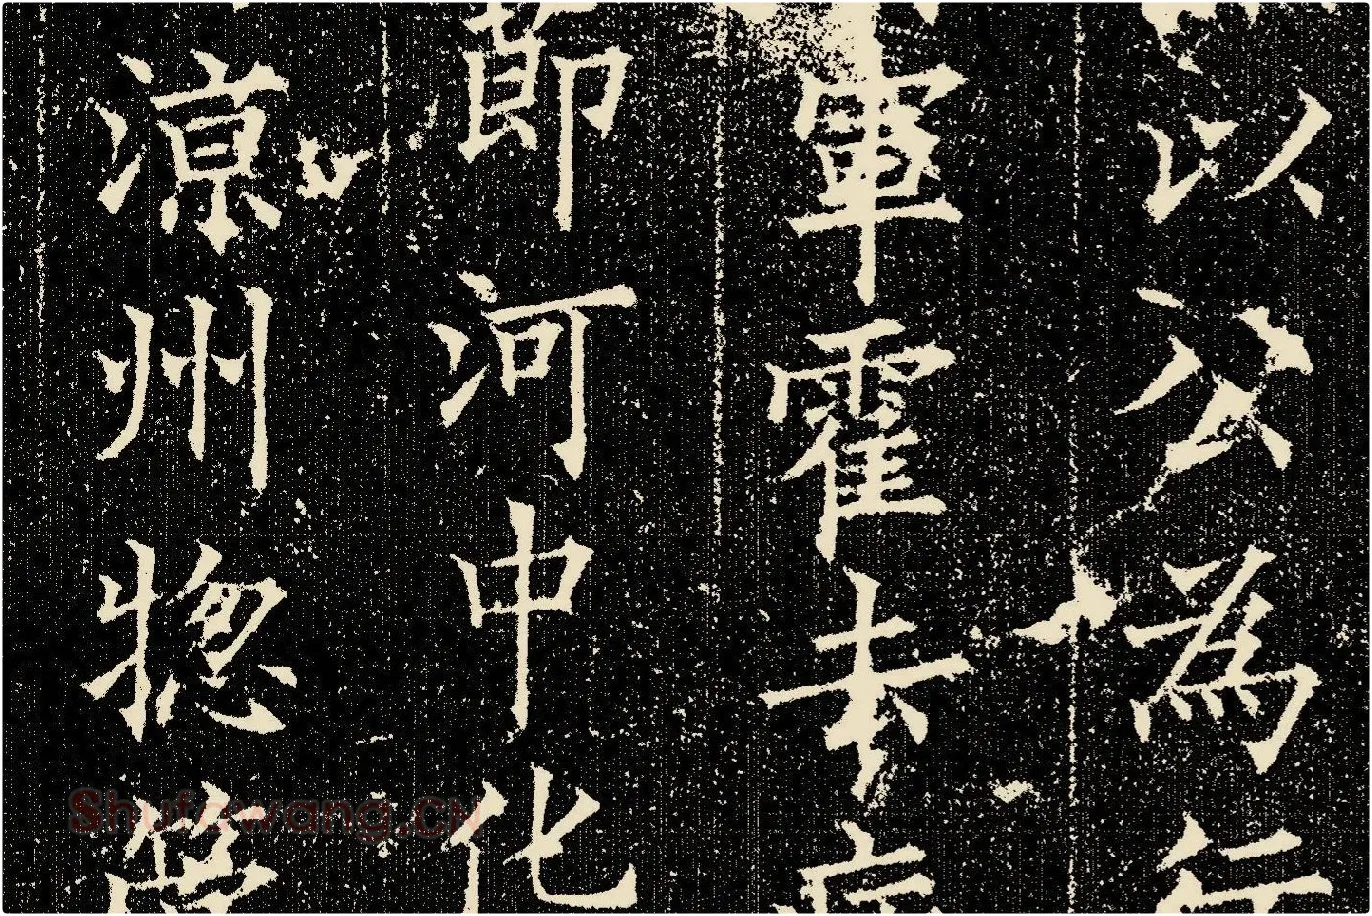 以公為行
軍霍去病
節河中化
涼州揔管
Shufawang.CN